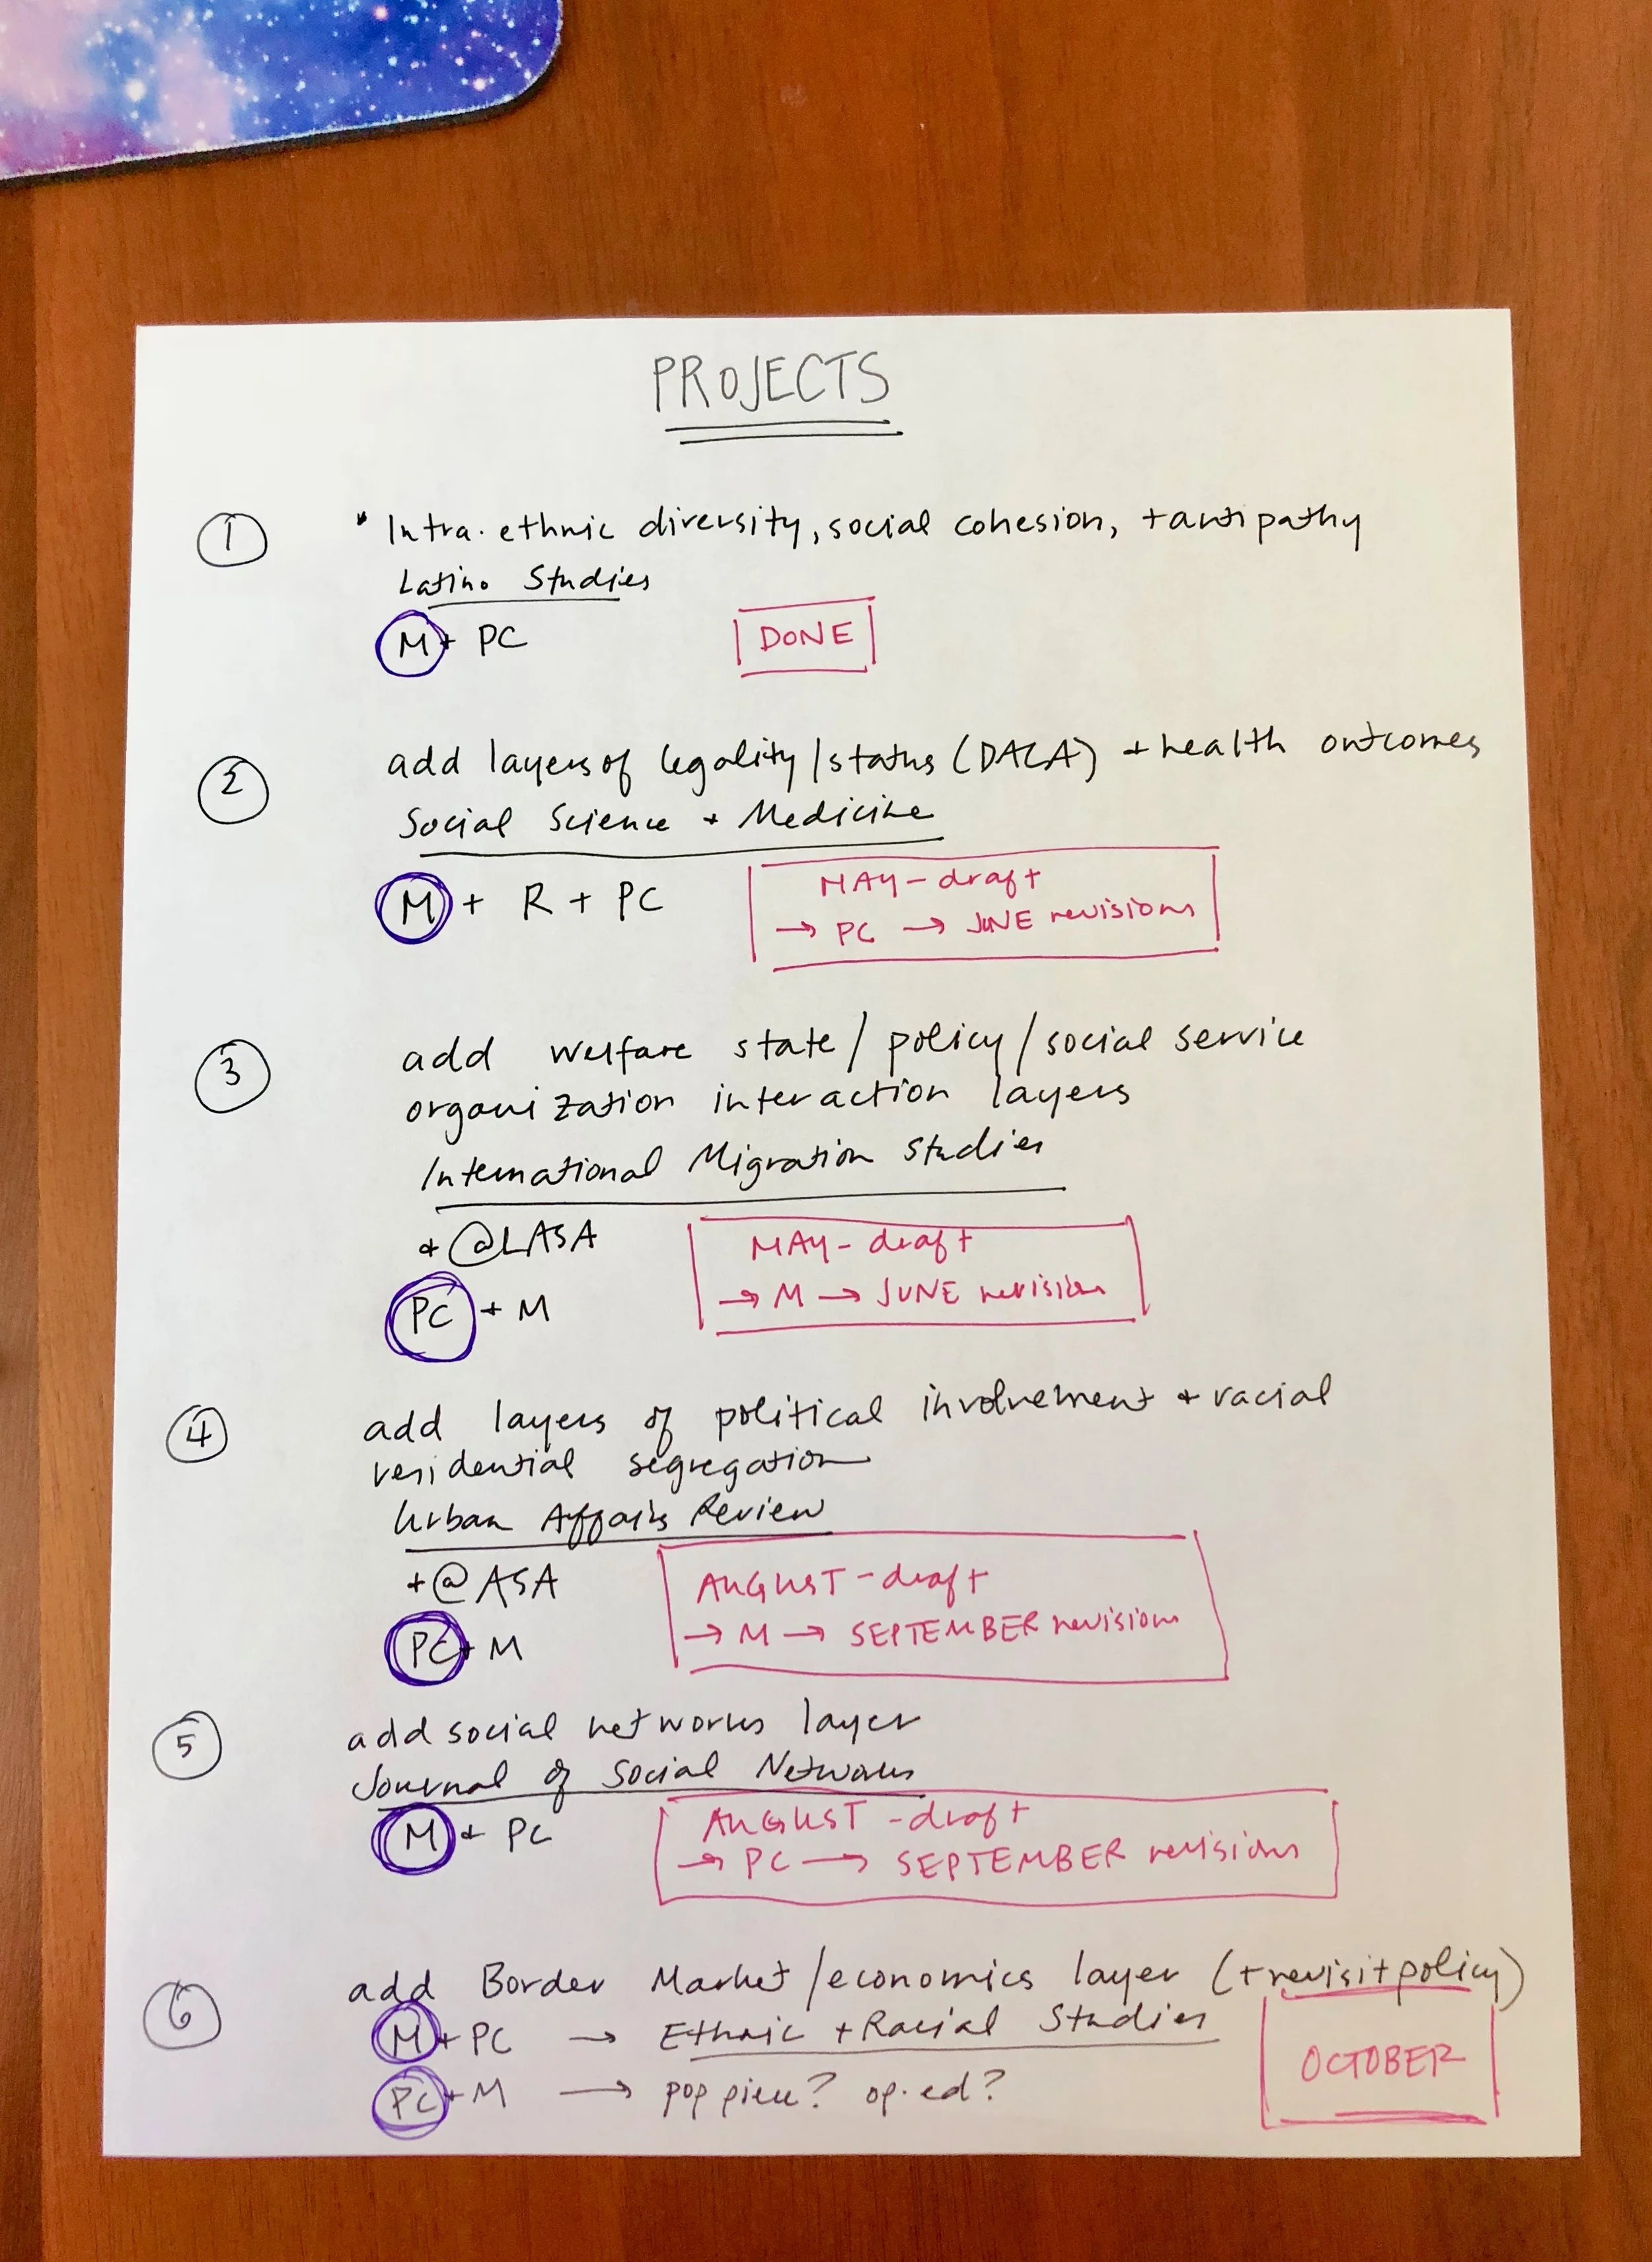 PROJECTS
1
Intra-ethnic diversity, social cohesion, + antipathy
Latino Studies
M + PC
DONE
2
add layers of legality/status (DACA) + health outcomes
Social Science + Medicine
M + R + PC
MAY - draft
→ PC → JUNE revisions
3
add welfare state / policy / social service
organization interaction layers
International Migration Studies
+ @LASA
PC + M
MAY - draft
→ M → JUNE revision
4
add layers of political involvement + racial
residential segregation
Urban Affairs Review
+ @ ASA
PC + M
AUGUST - draft
→ M → SEPTEMBER revisions
5
add social networks layer
Journal of Social Networks
M + PC
AUGUST - draft
→ PC → SEPTEMBER revisions
6
add Border Market/economics layer (+ revisit policy)
M + PC → Ethnic + Racial Studies
PC + M → pop piece? op-ed?
OCTOBER